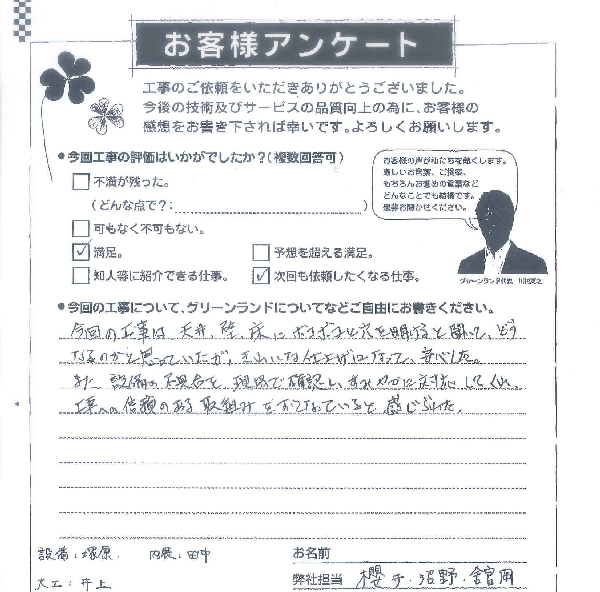 お客様アンケート
工事のご依頼をいただきありがとうございました。
今後の技術及びサービスの品質向上の為に、お客様の
感想をお書き下されば幸いです。よろしくお願いします。
●今回工事の評価はいかがでしたか?(複数回答可)
不満が残った。
(どんな点で?: )
可もなく不可もない。
満足。
予想を超える満足。
知人等に紹介できる仕事。
次回も依頼したくなる仕事。
お客様の声が私たちを強くします。
厳しいお言葉、ご提案、
もちろんお褒めの言葉など
どんなことでも結構です。
是非お聞かせください。
グリーンランド代表
●今回の工事について、グリーンランドについてなどご自由にお書きください。
今回の工事は、天井、壁、床にボコボコと穴を開けると聞いて、どう
なるのかと思っていたが、きれいな仕上げになって、安心した。
また、設備の不具合を、現場で確認し、すみやかに対応してくれ、
工事への信頼のある取組みをおこなっていると感じられた。
設備:塚原.
内装:田中
大工:井上
お名前
弊社担当 櫻井・沼野・舘岡